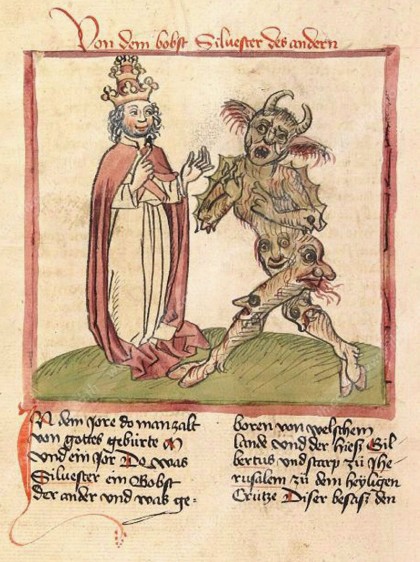 Von dem bobst Siluester des andern
IN dem Jore do man zalt
von gottes gebürte M
vnd ein Jor Do was
Siluester ein Bobst
der ander vnd was ge-
boren von welschem
lande vnd der hieß Gil-
bertus vnd starp zü Jhe-
rusalem zü dem heyligen
Crütze Diser besass den